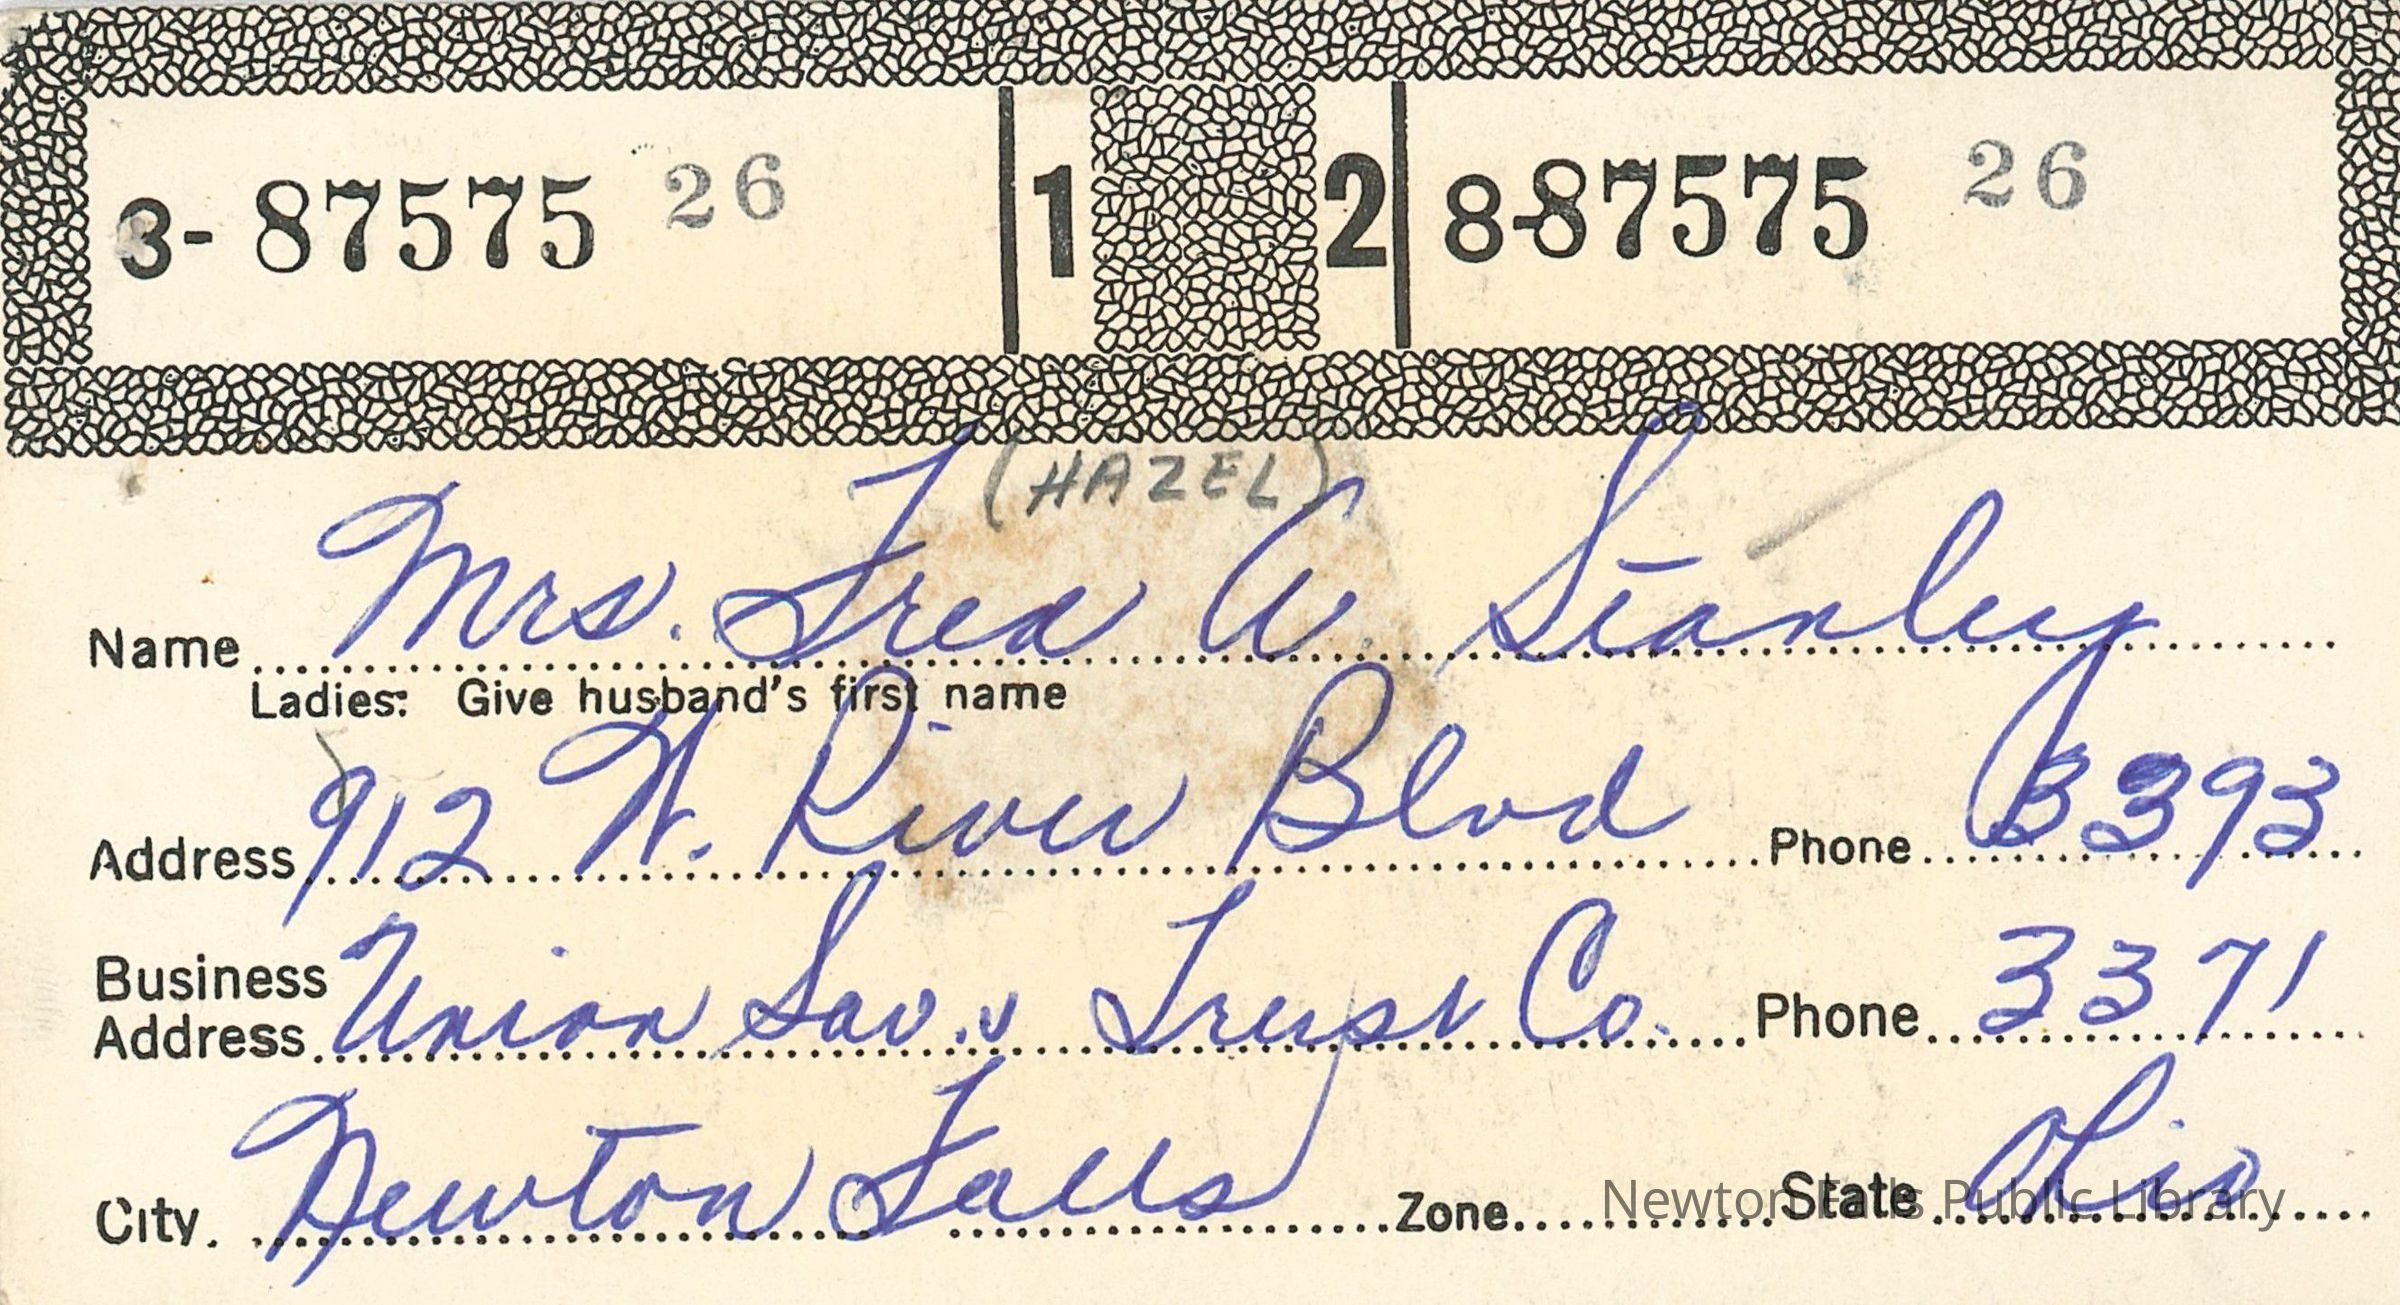 3- 87575 26 1 2 8-87575 26
(HAZEL)
Name Mrs. Fred A. Stanley
Ladies: Give husband's first name
Address 912 W. River Blvd Phone 3393
Business
Address Union Sav. & Trust Co. Phone 3371
City. Newton Falls Zone State Ohio
Newton Falls Public Library